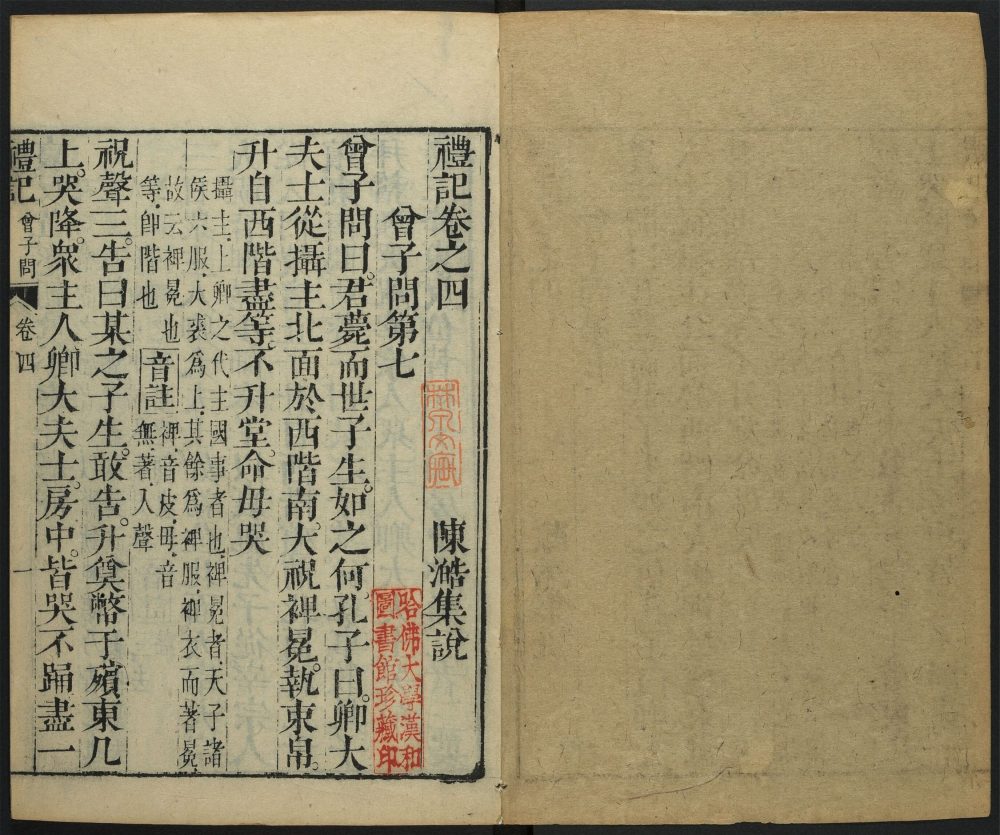 禮記卷之四
陳澔集說
曾子問第七
哈佛大學漢和
圖書館珍藏印
曾子問曰君薨而世子生如之何孔子曰卿大
夫士從攝主北面於西階南大祝裨冕執束帛
升自西階盡等不升堂命毋哭
攝主上卿之代主國事者也裨冕者天子諸
侯六服大裘爲上其餘爲裨服裨衣而著冕
故云裨冕也
等卽階也
音註
裨音皮毋音
無著入聲
祝聲三告曰某之子生敢告升奠幣于殯東几
上哭降衆主人卿大夫士房中皆哭不踊盡一
禮記
曾子問
卷四
一